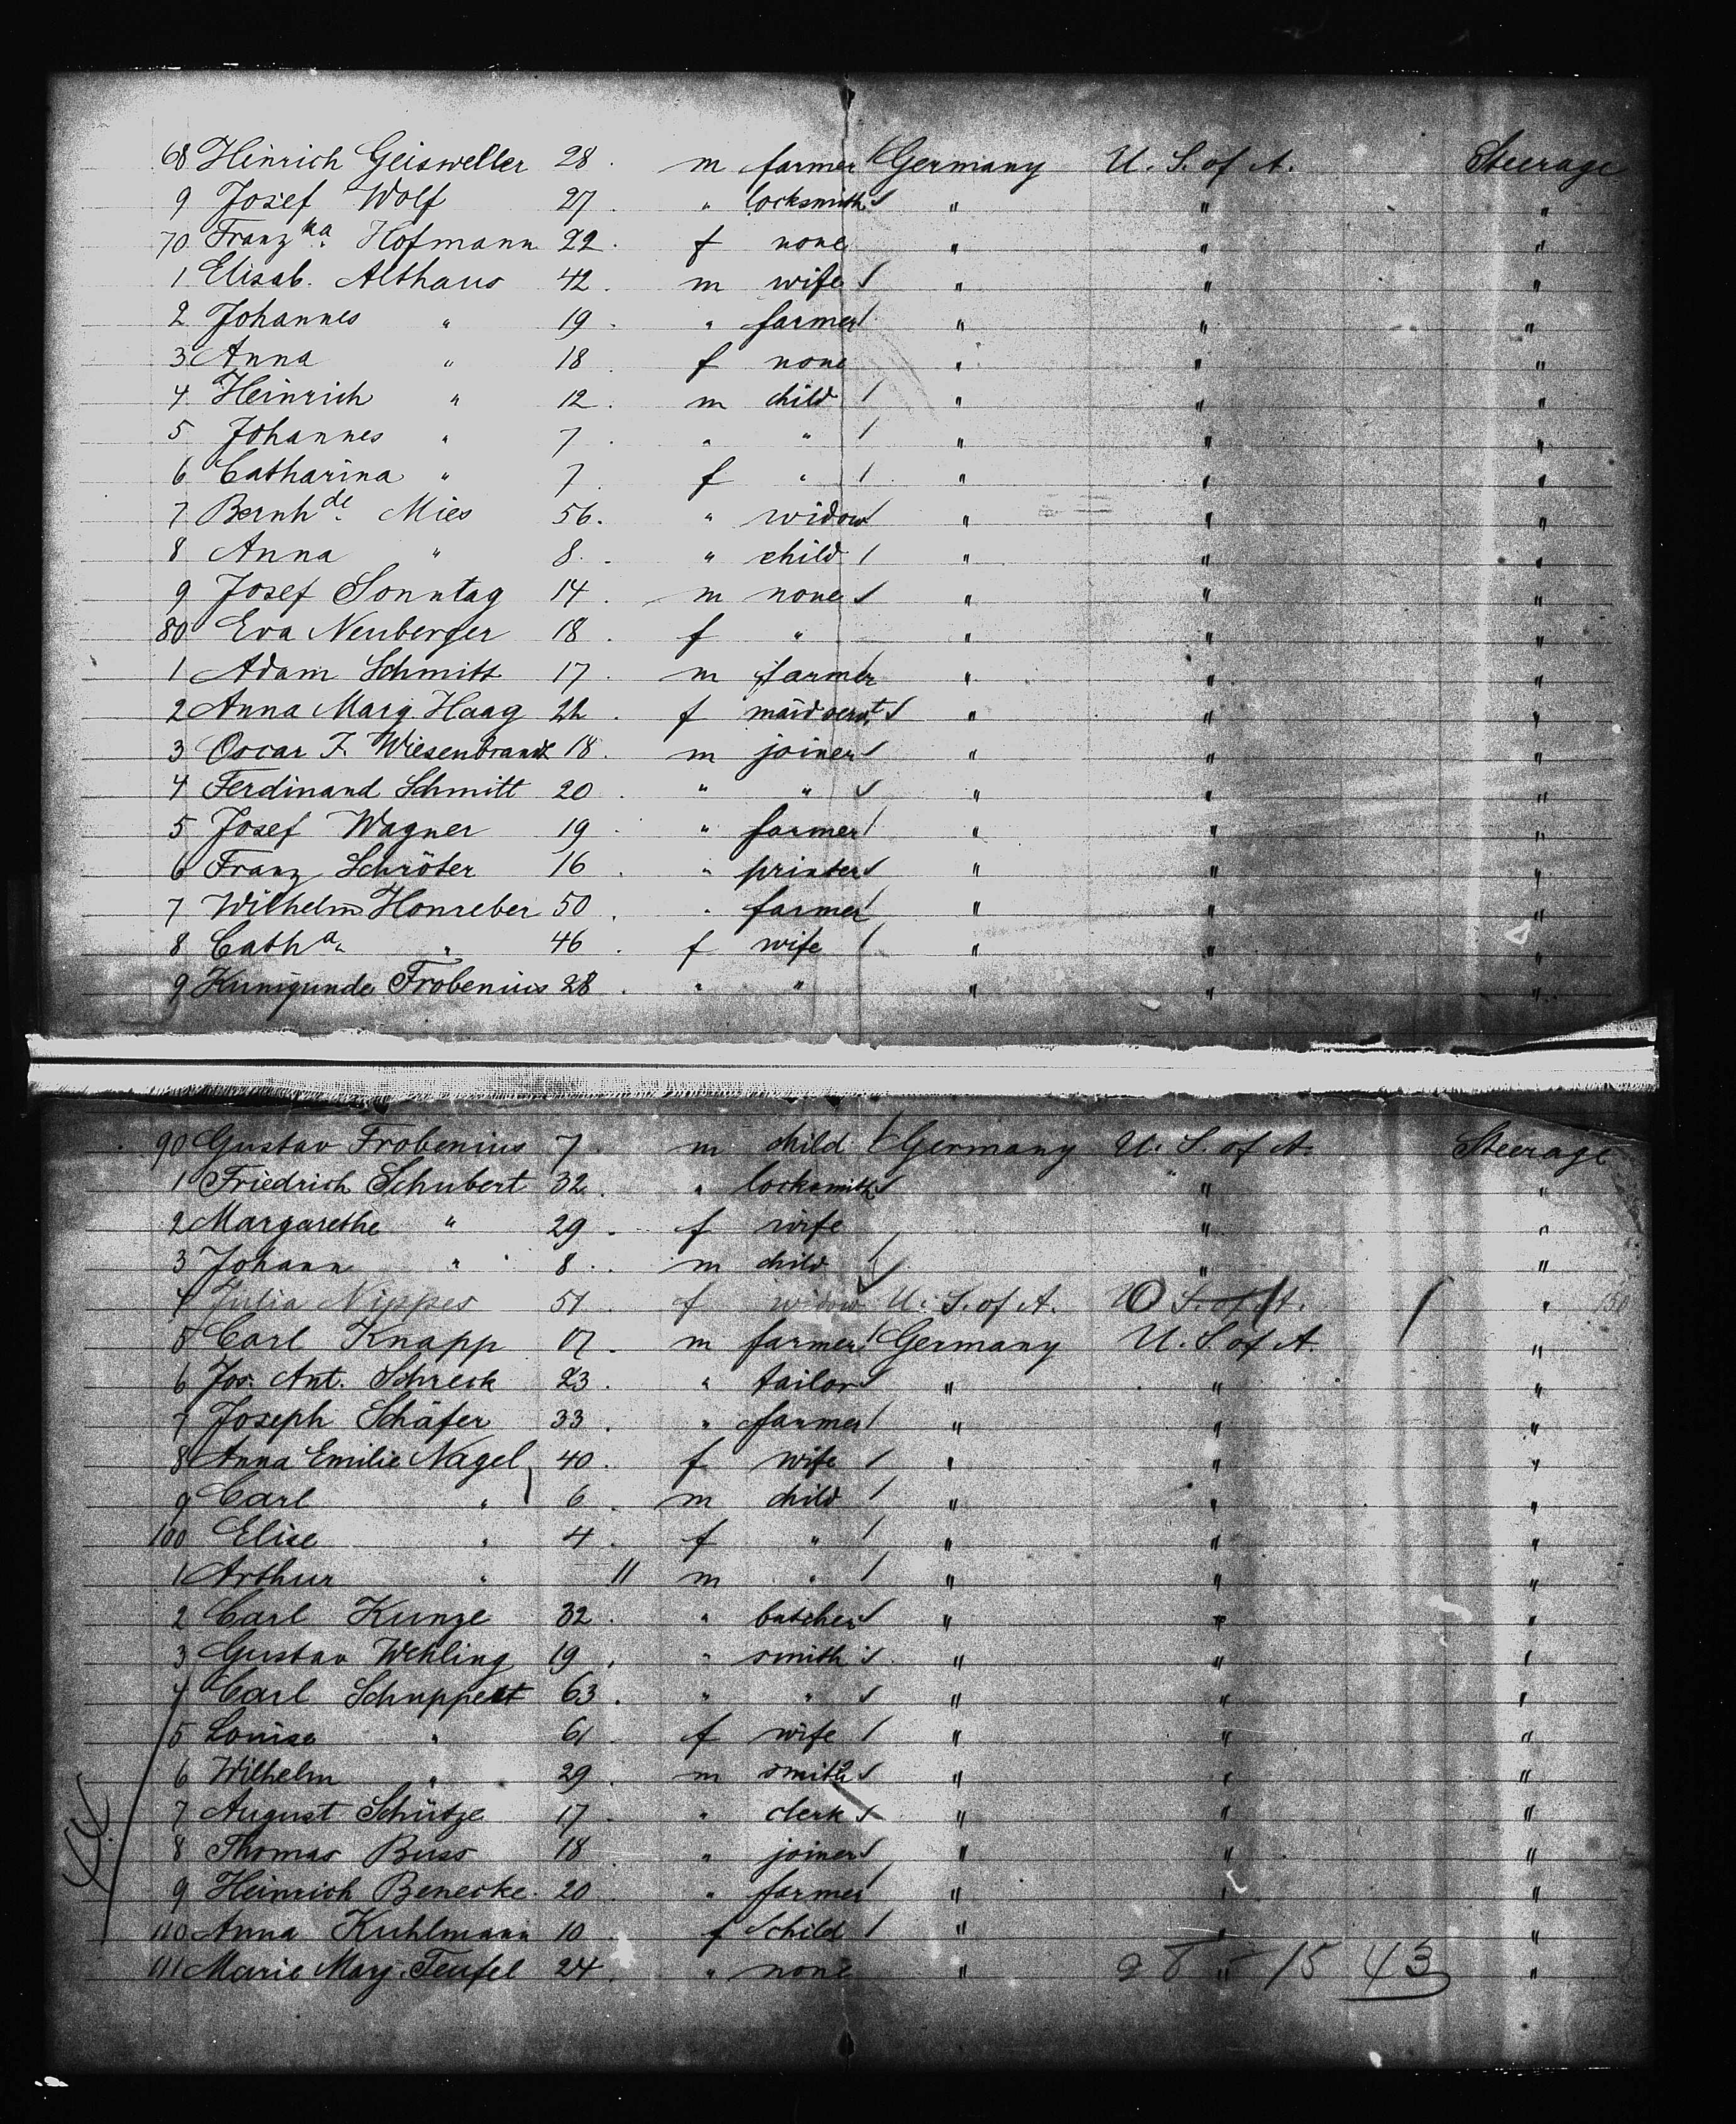 68 Heinrich Geisweller 28 . m farmer Germany U. S. of A. Steerage
9 Josef Wolf 27 . " locksmith " " "
70 Franz ka. Hofmann 22 . f none " " "
1 Elisab. Althaus 42 . m wife " " "
2 Johannes " 19 . " farmer " " "
3 Anna " 18 . f none " " "
4 Heinrich " 12 . m child " " "
5 Johannes " 7 . " " " " "
6 Catharina " 7 . f " " " "
7 Bernh de. Mies 56 . " widow " " "
8 Anna " 8 . " child " " "
9 Josef Sonntag 14 . m none " " "
80 Eva Neuberger 18 . f " " " "
1 Adam Schmitt 17 . m farmer " " "
2 Anna Marg. Haag 22 . f maidservt " " "
3 Oscar F. Wiesenbrandt 18 . m joiner " " "
4 Ferdinand Schmitt 20 . " " " " "
5 Josef Wagner 19 . " farmer " " "
6 Franz Schröter 16 . " printer " " "
7 Wilhelm Honreber 50 . " farmer " " "
8 Cath a. " 46 . f wife " " "
9 Kunigunde Frobenius 28 . " " " " "
90 Gustav Frobenius 7 . m child Germany U. S. of A. Steerage
1 Friedrich Schubert 32 . " locksmith " "
2 Margarethe " 29 . f wife " "
3 Johann " 8 . m child " "
4 Julia Nippes 51 f widow U. S. of A. U. S. of A. "
5 Carl Knapp 17 . m farmer Germany U. S. of A. "
6 Jos. Ant. Schreck 23 . " tailor " " "
7 Joseph Schäfer 33 . " farmer " " "
8 Anna Emilie Nagel 40 . f wife " " "
9 Carl " 6 . m child " " "
100 Elise " 4 . f " " " "
1 Arthur " 11 m " " " "
2 Carl Kunze 32 . " butcher " " "
3 Gustav Wehling 19 . " smith " " "
4 Carl Schuppert 63 . " " " " "
5 Louise " 61 . f wife " " "
6 Wilhelm " 29 . m smith " " "
7 August Schütze 17 . " clerk " " "
8 Thomas Buss 18 . " joiner " " "
9 Heinrich Benecke 20 . " farmer " " "
110 Anna Kuhlmann 10 f child " " "
111 Marie Marg. Teufel 24 . " none " " 28 - 15 43 "